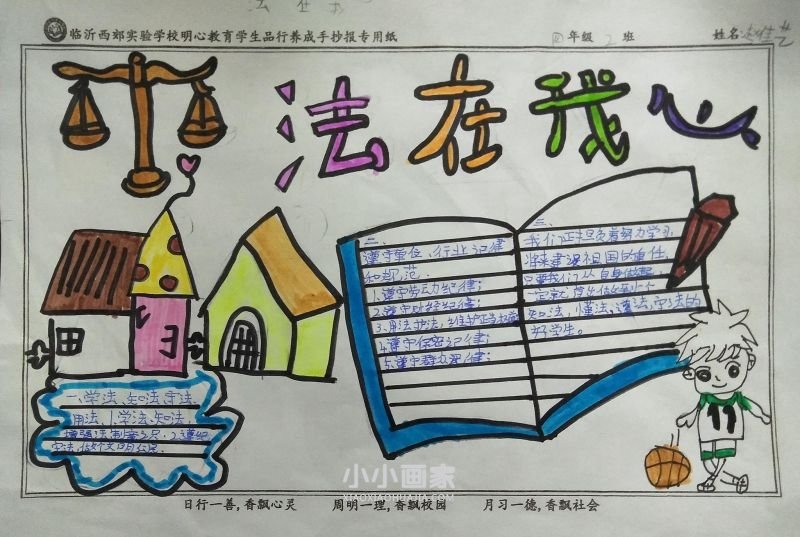 法在我
临沂西郊实验学校明心教育学生品行养成手抄报专用纸
四年级 2 班 姓名
法在我心
二、
遵守单位、行业记律
和规范.
1.遵守劳动纪律;
2.遵守财经纪律;
3.用法护法,维护正当权益
4.遵守保密记律;
5.遵守群众记律;
三、
我们正担负着努力学习,
将来建设祖国的重任,
只要我们从自身做起,
一定就
知法,懂法、遵法,守法的
好学生。
一、学法、知法、守法、
用法、1.学法、知法
增强法制
守法,做个文明公民.
小小画家
XIAOXIAOHUAJIA.COM
日行一善,香飘心灵 周明一理,香飘校园 月习一德,香飘社会